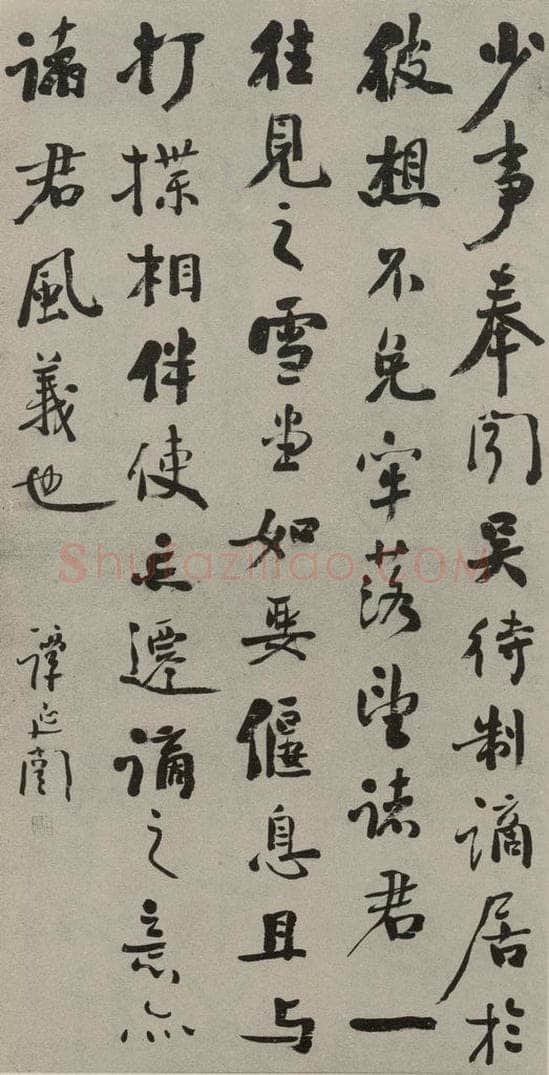 少事奉聞吳待制謫居於
彼想不免牢落望諸君一
往見之雪堂如要偃息且与
打揲相伴使忘遷謫之意亦
諸君風義也
譚延闓
Shufaziliao.COM